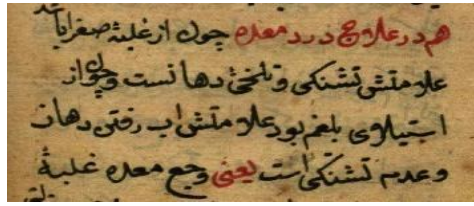 هم در علاج درد معده چون از غلبۀ صفرا باشد
علامتش تشنکی و تلخیٔ دهانست و چون از
استیلای بلغم بود علامتش اب رفتن دهان
و عدم تشنکی است یعنی وجع معده غلبۀ